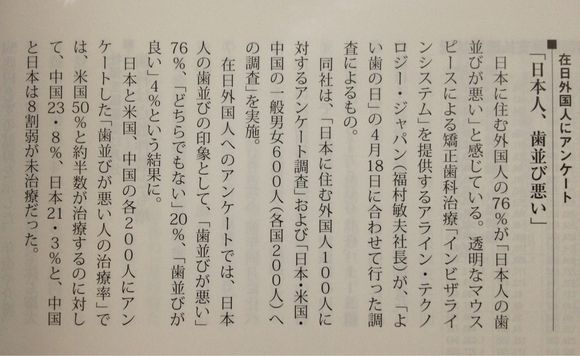 在日外国人にアンケート
「日本人、歯並び悪い」
日本に住む外国人の76%が「日本人の歯
並びが悪い」と感じている。透明なマウス
ピースによる矯正歯科治療「インビザライ
ンシステム」を提供するアライン・テクノ
ロジー・ジャパン（福村敏夫社長）が、「よ
い歯の日」の4月18日に合わせて行った調
査によるもの。
同社は、「日本に住む外国人100人に
対するアンケート調査」および「日本・米国・
中国の一般男女600人（各国200人）へ
の調査」を実施。
在日外国人へのアンケートでは、日本
人の歯並びの印象として、「歯並びが悪い」
76%、「どちらでもない」20%、「歯並びが
良い」4%という結果に。
日本と米国、中国の各200人にアン
ケートした「歯並びが悪い人の治療率」で
は、米国50%と約半数が治療するのに対し
て、中国23・8%、日本21・3%と、中国
と日本は8割弱が未治療だった。